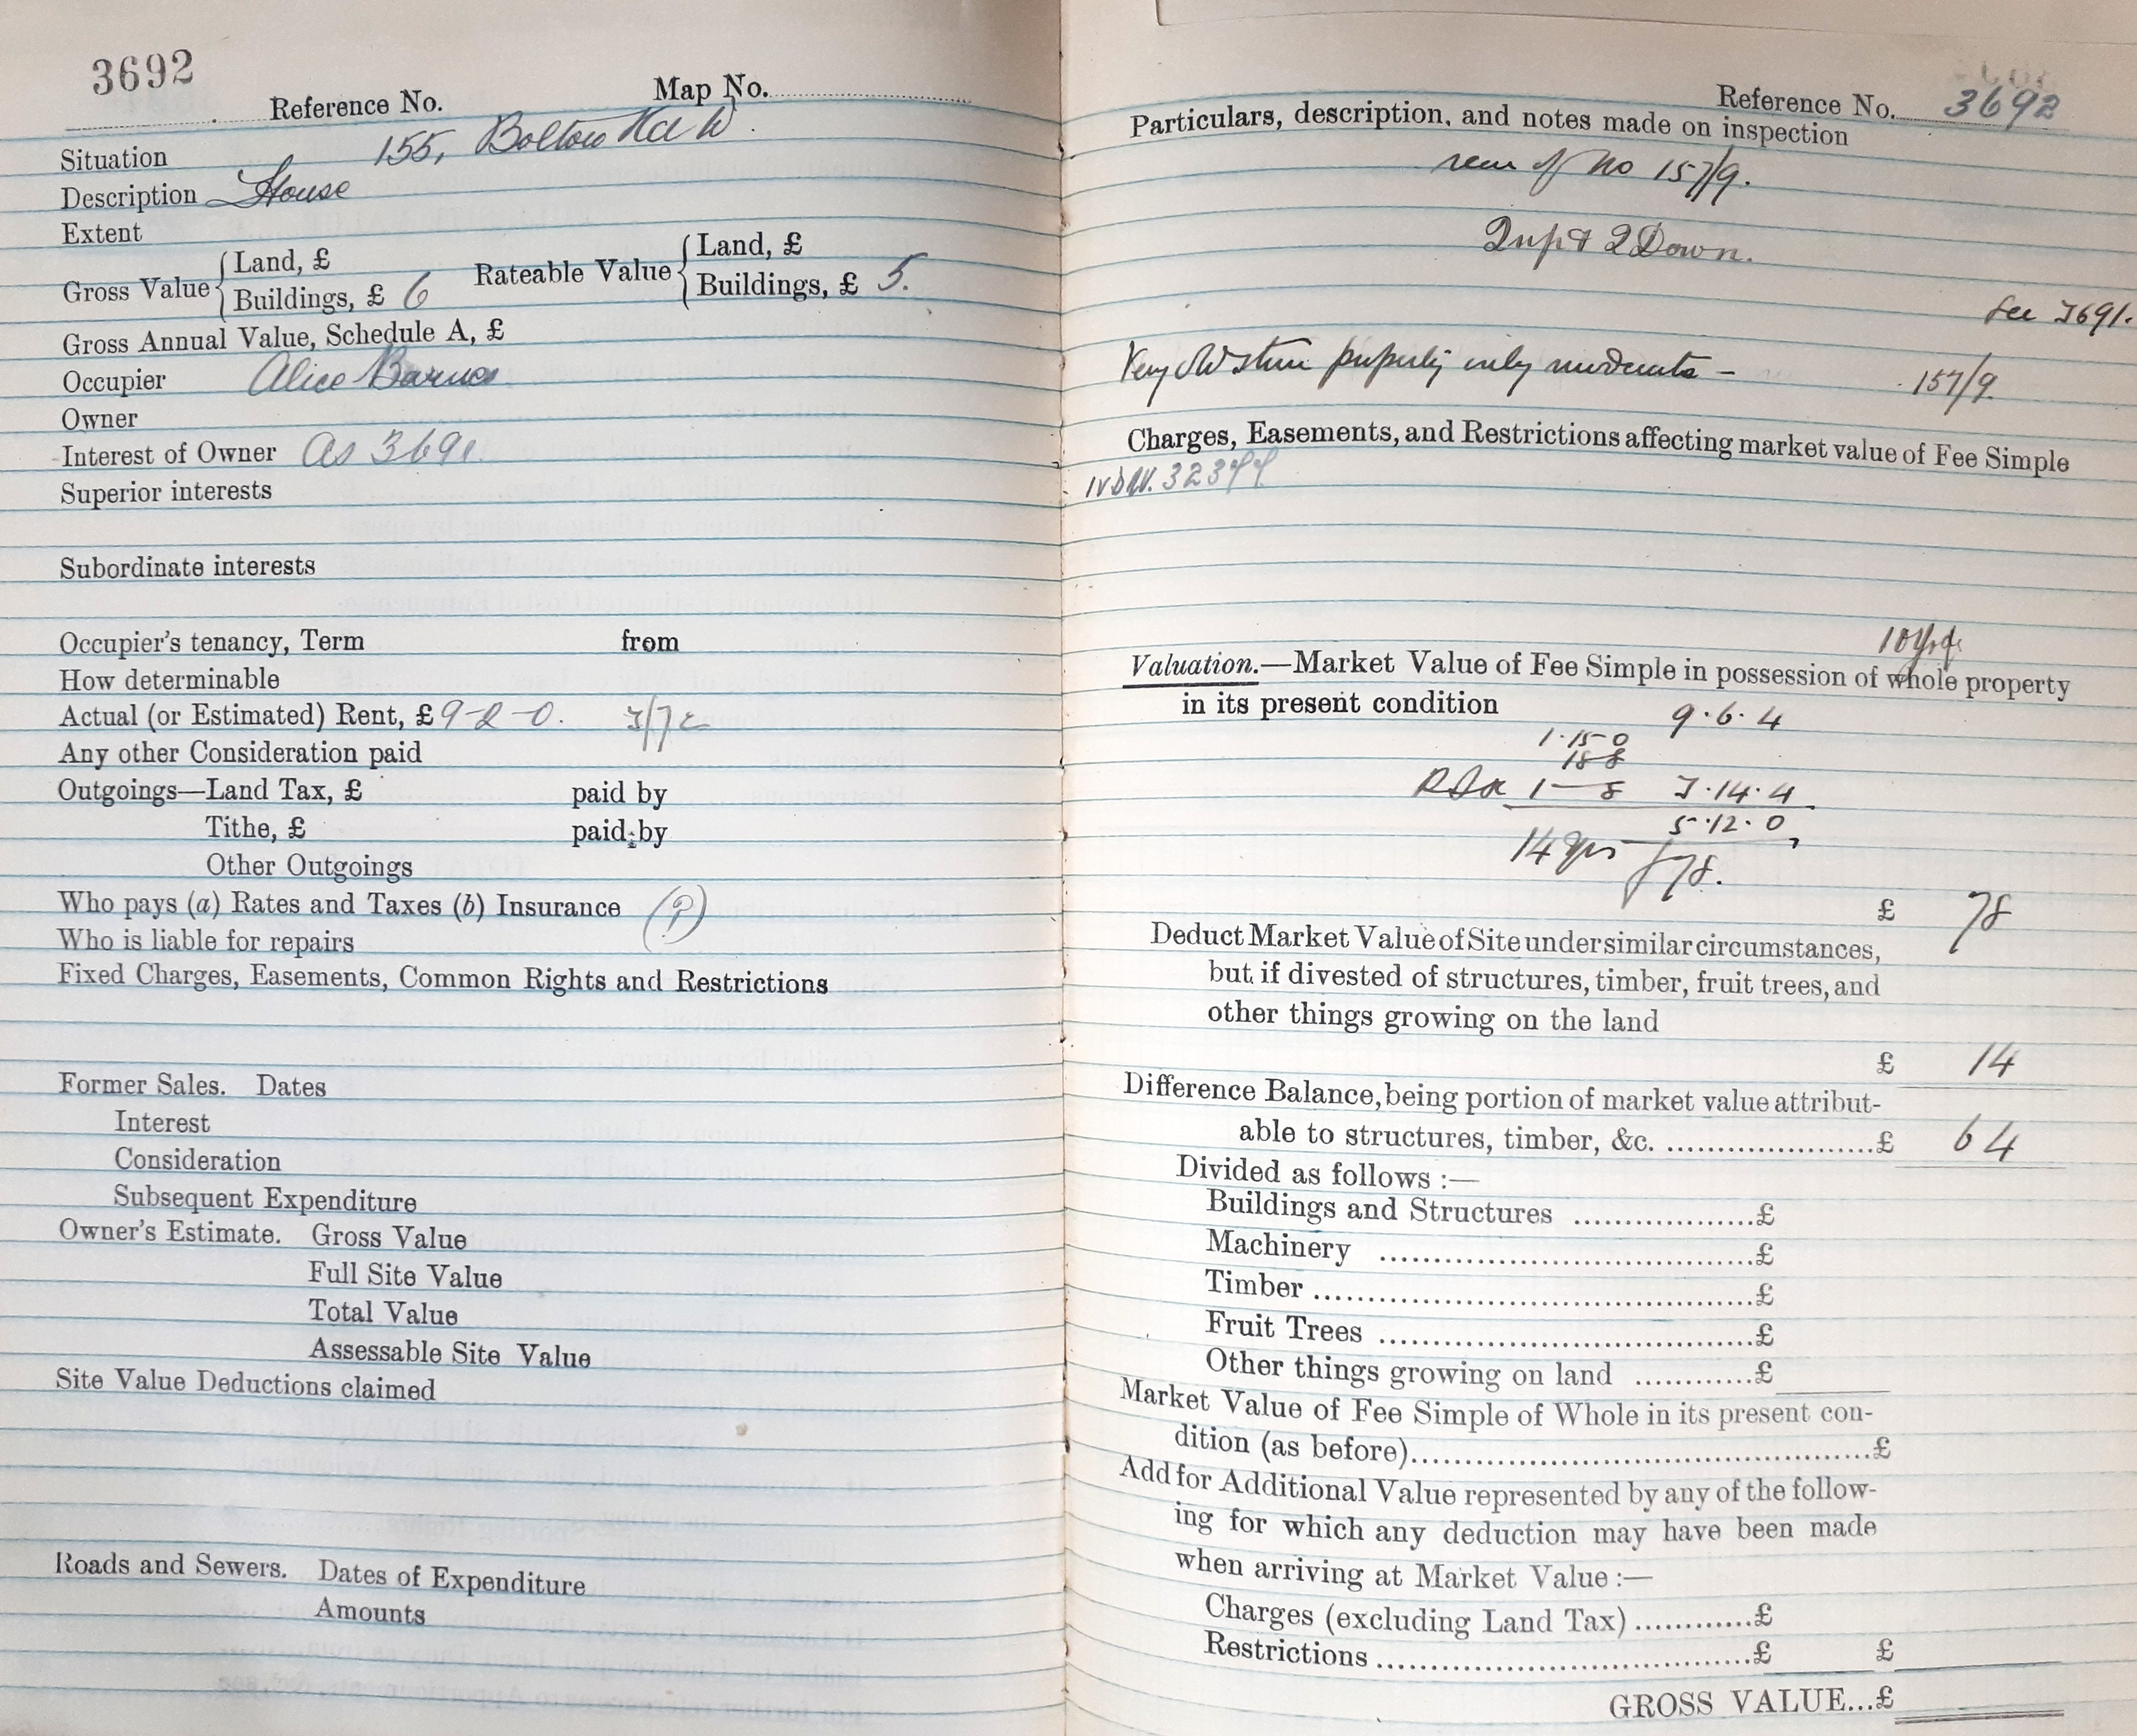 3692
Reference No.
Map No.
Situation 155, Bolton Rd W.
Description House
Extent
Gross Value { Land, £
Buildings, £ 6
Rateable Value { Land, £
Buildings, £ 5.
Gross Annual Value, Schedule A, £
Occupier Alice Barnes
Owner
Interest of Owner As 3691.
Superior interests
Subordinate interests
Occupier's tenancy, Term from
How determinable
Actual (or Estimated) Rent, £ 9-2-0.
Any other Consideration paid
Outgoings—Land Tax, £ paid by
Tithe, £ paid by
Other Outgoings
Who pays (a) Rates and Taxes (b) Insurance
Who is liable for repairs
Fixed Charges, Easements, Common Rights and Restrictions
Former Sales. Dates
Interest
Consideration
Subsequent Expenditure
Owner's Estimate. Gross Value
Full Site Value
Total Value
Assessable Site Value
Site Value Deductions claimed
Roads and Sewers. Dates of Expenditure
Amounts
Reference No. 3692
Particulars, description, and notes made on inspection
rear of No 157/9.
2 up & 2 Down.
See 3691.
Very old stone property only moderate — 157/9.
Charges, Easements, and Restrictions affecting market value of Fee Simple
Valuation.—Market Value of Fee Simple in possession of whole property
in its present condition
9·6·4
1·15·0
18·8
1—8 3·14·4
5·12·0
14 yrs £78.
£ 78
Deduct Market Value of Site under similar circumstances,
but if divested of structures, timber, fruit trees, and
other things growing on the land
£ 14
Difference Balance, being portion of market value attribut-
able to structures, timber, &c. ....................£ 64
Divided as follows :—
Buildings and Structures ..................£
Machinery ..................£
Timber ..................£
Fruit Trees ..................£
Other things growing on land ............£
Market Value of Fee Simple of Whole in its present con-
dition (as before)..................£
Add for Additional Value represented by any of the follow-
ing for which any deduction may have been made
when arriving at Market Value :—
Charges (excluding Land Tax) ............£
Restrictions ..................£ £
GROSS VALUE...£